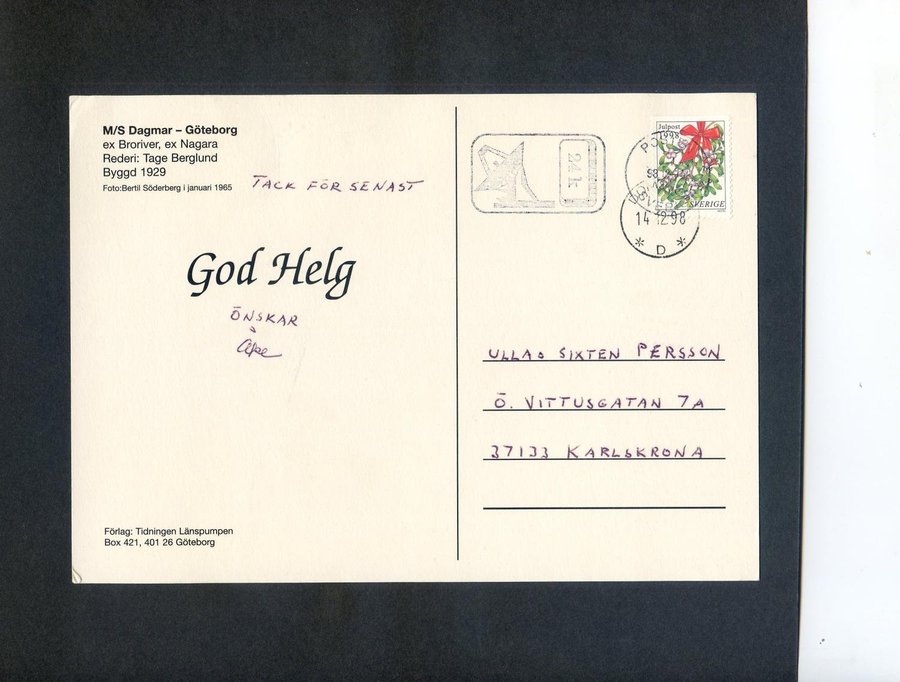 M/S Dagmar – Göteborg
ex Broriver, ex Nagara
Rederi: Tage Berglund
Byggd 1929
Foto:Bertil Söderberg i januari 1965
TACK FÖR SENAST
God Helg
ÖNSKAR
Åke
Förlag: Tidningen Länspumpen
Box 421, 401 26 Göteborg
24k
Julpost
1998
SVERIGE
14 12 98
* D *
ULLA o SIXTEN PERSSON
Ö. VITTUSGATAN 7A
37133 KARLSKRONA